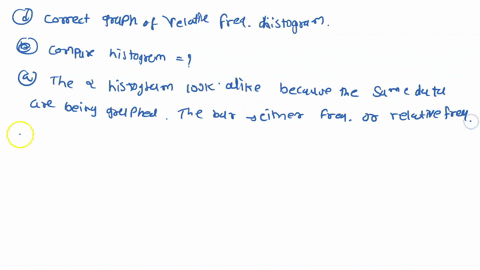 (d) correct graph of relative freq. histogram.
(b) compare histogram = ?
(a) The 2 histogram look alike because the same data
are being graphed. The bar → either freq. or relative freq.